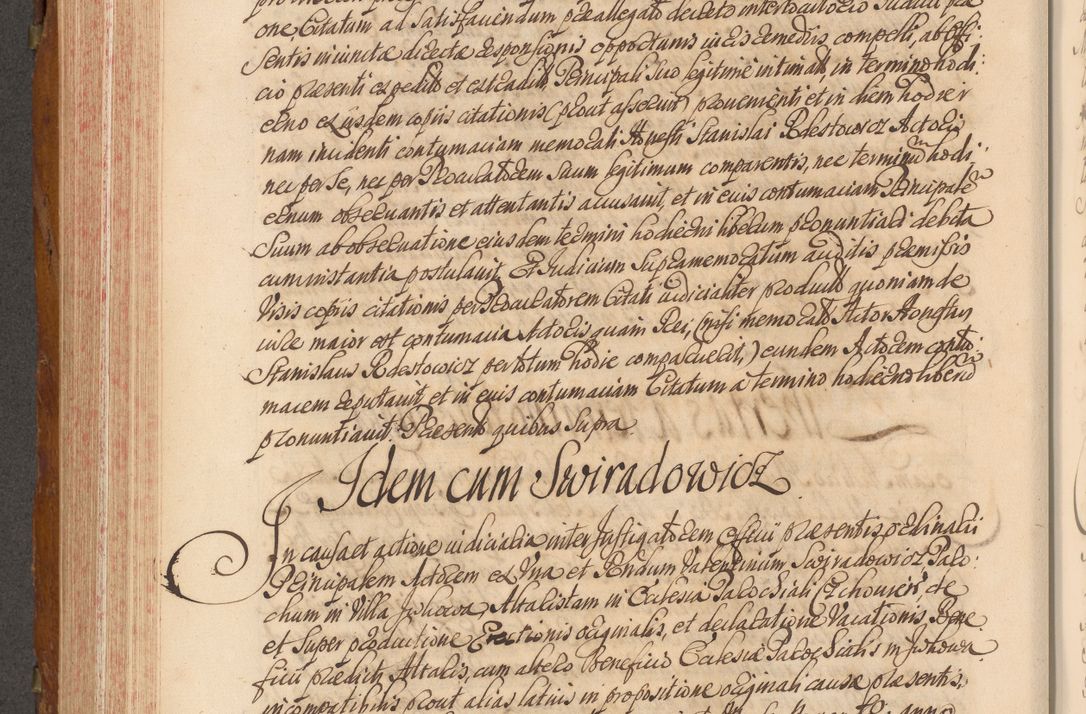 one Citatum ad Satisfaciendum præallegato decreto interlocutorio Judicii præ
sentis in iuncta directa responsionis opportunis iuris remediis compelli, ab offi:
cio præsenti expedito et extradito Principali Suo legitime intimato in termino hodi:
erno ex Ejusdem copiis citationis (prout asseruit) provenienti et in diem hodier
nam incidenti contumaciam memorati Honesti Stanislai Rdestowicz Actoris
nec per Se, nec per Procuratorem Suum legitimum comparentis, nec terminum hodi:
ernum observantis et attentantis accusavit, et in eius contumaciam Principalem
Suum ab observatione eiusdem termini hodierni liberum pronuntiari debita
cum instantia postulavit. Et Judicium Supramemoratum auditis præmissis
Visis copiis citationis per Procuratorem Citati iudicialiter productis quoniam de
iure maior est contumacia Actoris quam Rei, (nisi memoratus Actor Honestus
Stanislaus Rdestowicz per totum hodie comparuerit,) eundem Actorem contu:
macem reputavit et in eius contumaciam Citatum a termino hodierno liberum
pronuntiavit. Præsentibus quibus Supra.
Idem cum Swiradowicz
In causa et actione iudicialia inter Instigatorem Officii præsentis ordinarii
Principalem Actorem ex Una et Rndum Valentinum Swiradowicz Paro:
chum in Villa Altalistam in Ecclesia Parochiali de
et Super productione Erectionis originalis, et declaratione Vacationis, Bene
ficii prædicti Altaris, cum altero Beneficio Ecclesiæ Parochialis in
incompatibilis prout alias latius in propositione originali causæ præsentis,
anno